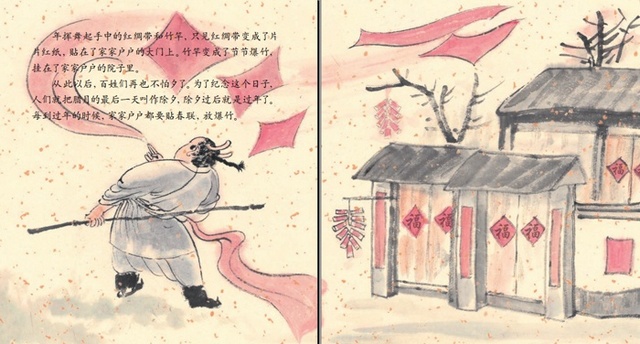 年挥舞起手中的红绸带和竹竿，只见红绸带变成了片
片红纸，贴在了家家户户的大门上。竹竿变成了节节爆竹，
挂在了家家户户的院子里。
从此以后，百姓们再也不怕夕了。为了纪念这个日子，
人们就把腊月的最后一天叫作除夕，除夕过后就是过年了。
每到过年的时候，家家户户都要贴春联、放爆竹。
福
福
福
福